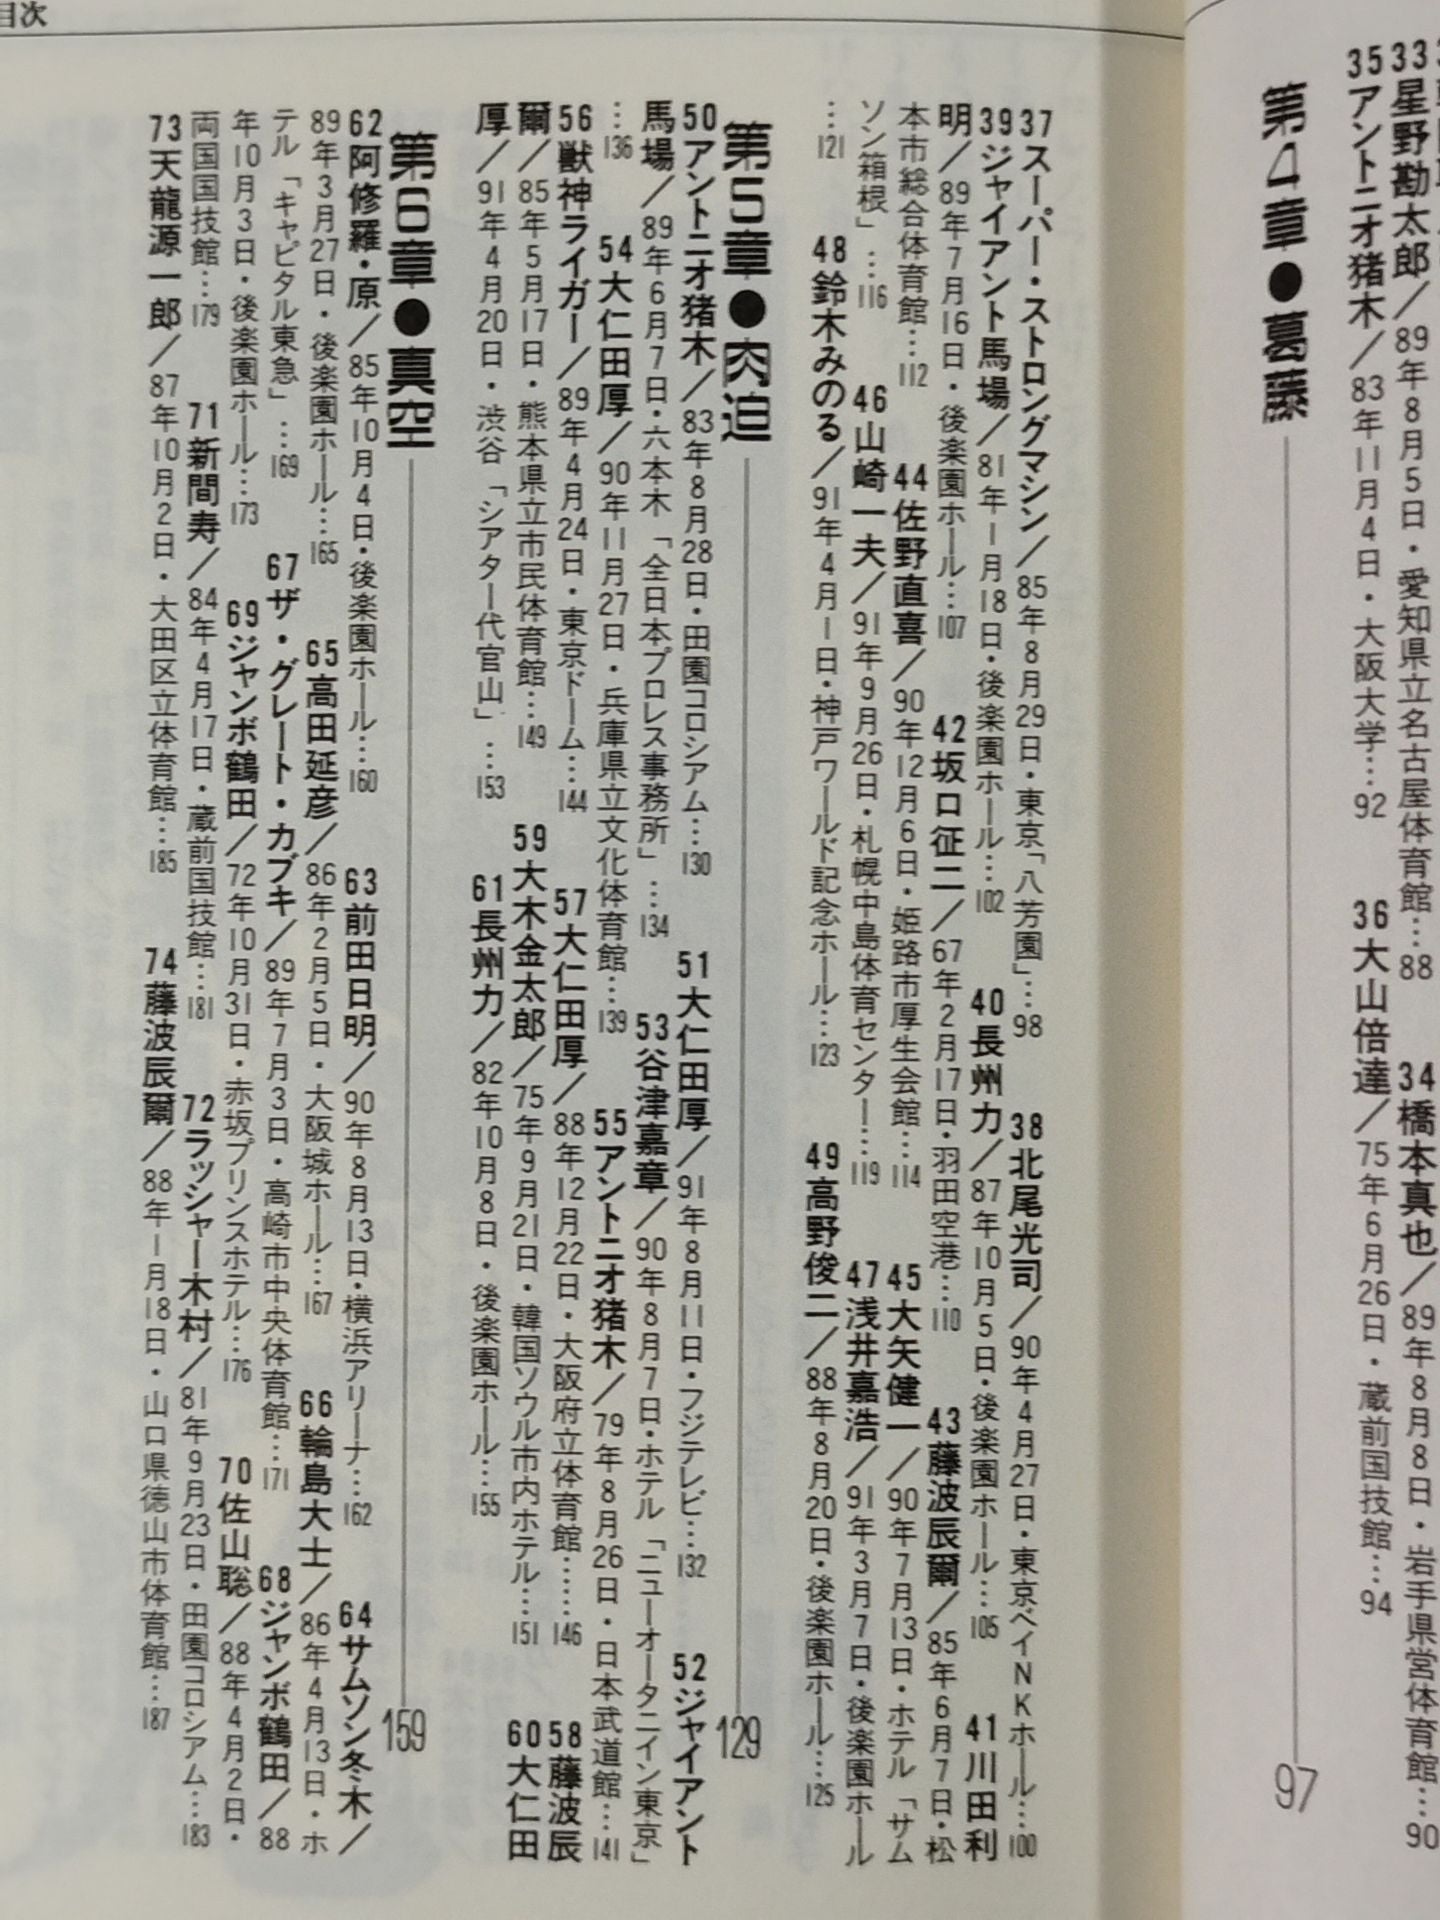 目次
33星野勘太郎／89年8月5日・愛知県立名古屋体育館…88　34橋本真也／89年8月8日・岩手県営体育館…90
35アントニオ猪木／83年11月4日・大阪大学…92　36大山倍達／75年6月26日・蔵前国技館…94
第4章●葛藤　97
37スーパー・ストロングマシン／85年8月29日・東京「八芳園」…98　38北尾光司／90年4月27日・東京ベイNKホール…100
39ジャイアント馬場／81年1月18日・後楽園ホール…102　40長州力／87年10月5日・後楽園ホール…105　41川田利
明／89年7月16日・後楽園ホール…107　42坂口征二／67年2月17日・羽田空港…110　43藤波辰爾／85年6月7日・松
本市総合体育館…112　44佐野直喜／90年12月6日・姫路市厚生会館…114　45大矢健一／90年7月13日・ホテル「サム
ソン箱根」…116　46山崎一夫／91年9月26日・札幌中島体育センター…119　47浅井嘉浩／91年3月7日・後楽園ホール
…121　48鈴木みのる／91年4月1日・神戸ワールド記念ホール…123　49高野俊二／88年8月20日・後楽園ホール…125
第5章●肉迫　129
50アントニオ猪木／83年8月28日・田園コロシアム…130　51大仁田厚／91年8月11日・フジテレビ…132　52ジャイアント
馬場／89年6月7日・六本木「全日本プロレス事務所」…134　53谷津嘉章／90年8月7日・ホテル「ニューオータニイン東京」
…136　54大仁田厚／90年11月27日・兵庫県立文化体育館…139　55アントニオ猪木／79年8月26日・日本武道館…141
56獣神ライガー／89年4月24日・東京ドーム…144　57大仁田厚／88年12月22日・大阪府立体育館……146　58藤波辰
爾／85年5月17日・熊本県立市民体育館…149　59大木金太郎／75年9月21日・韓国ソウル市内ホテル…151　60大仁田
厚／91年4月20日・渋谷「シアター代官山」…153　61長州力／82年10月8日・後楽園ホール…155
第6章●真空　159
62阿修羅・原／85年10月4日・後楽園ホール…160　63前田日明／90年8月13日・横浜アリーナ…162　64サムソン冬木／
89年3月27日・後楽園ホール…165　65高田延彦／86年2月5日・大阪城ホール…167　66輪島大士／86年4月13日・ホ
テル「キャピタル東急」…169　67ザ・グレート・カブキ／89年7月3日・高崎市中央体育館…171　68ジャンボ鶴田／88
年10月3日・後楽園ホール…173　69ジャンボ鶴田／72年10月31日・赤坂プリンスホテル…176　70佐山聡／88年4月2日・
両国国技館…179　71新間寿／84年4月17日・蔵前国技館…181　72ラッシャー木村／81年9月23日・田園コロシアム…183
73天龍源一郎／87年10月2日・大田区立体育館…185　74藤波辰爾／88年1月18日・山口県徳山市体育館…187